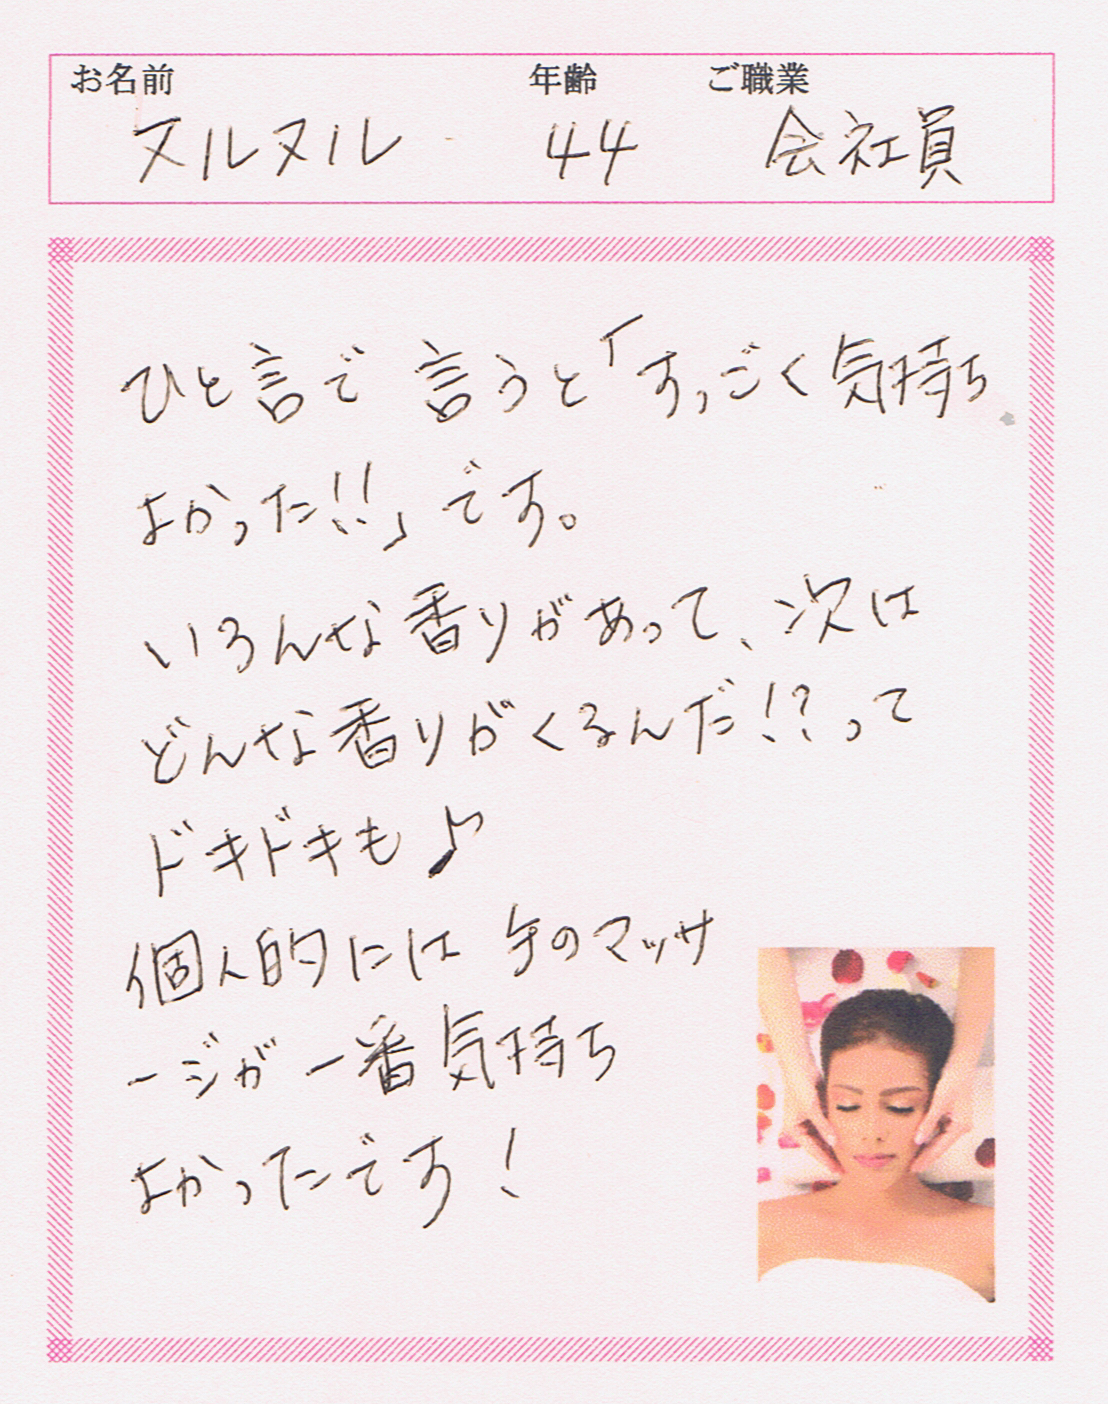 お名前 年齢 ご職業
ヌルヌル 44 会社員
ひと言で言うと「すっごく気持ち
よかった!!」です。
いろんな香りがあって、次は
どんな香りがくるんだ!?って
ドキドキも♪
個人的には手のマッサ
ージが一番気持ち
よかったです!